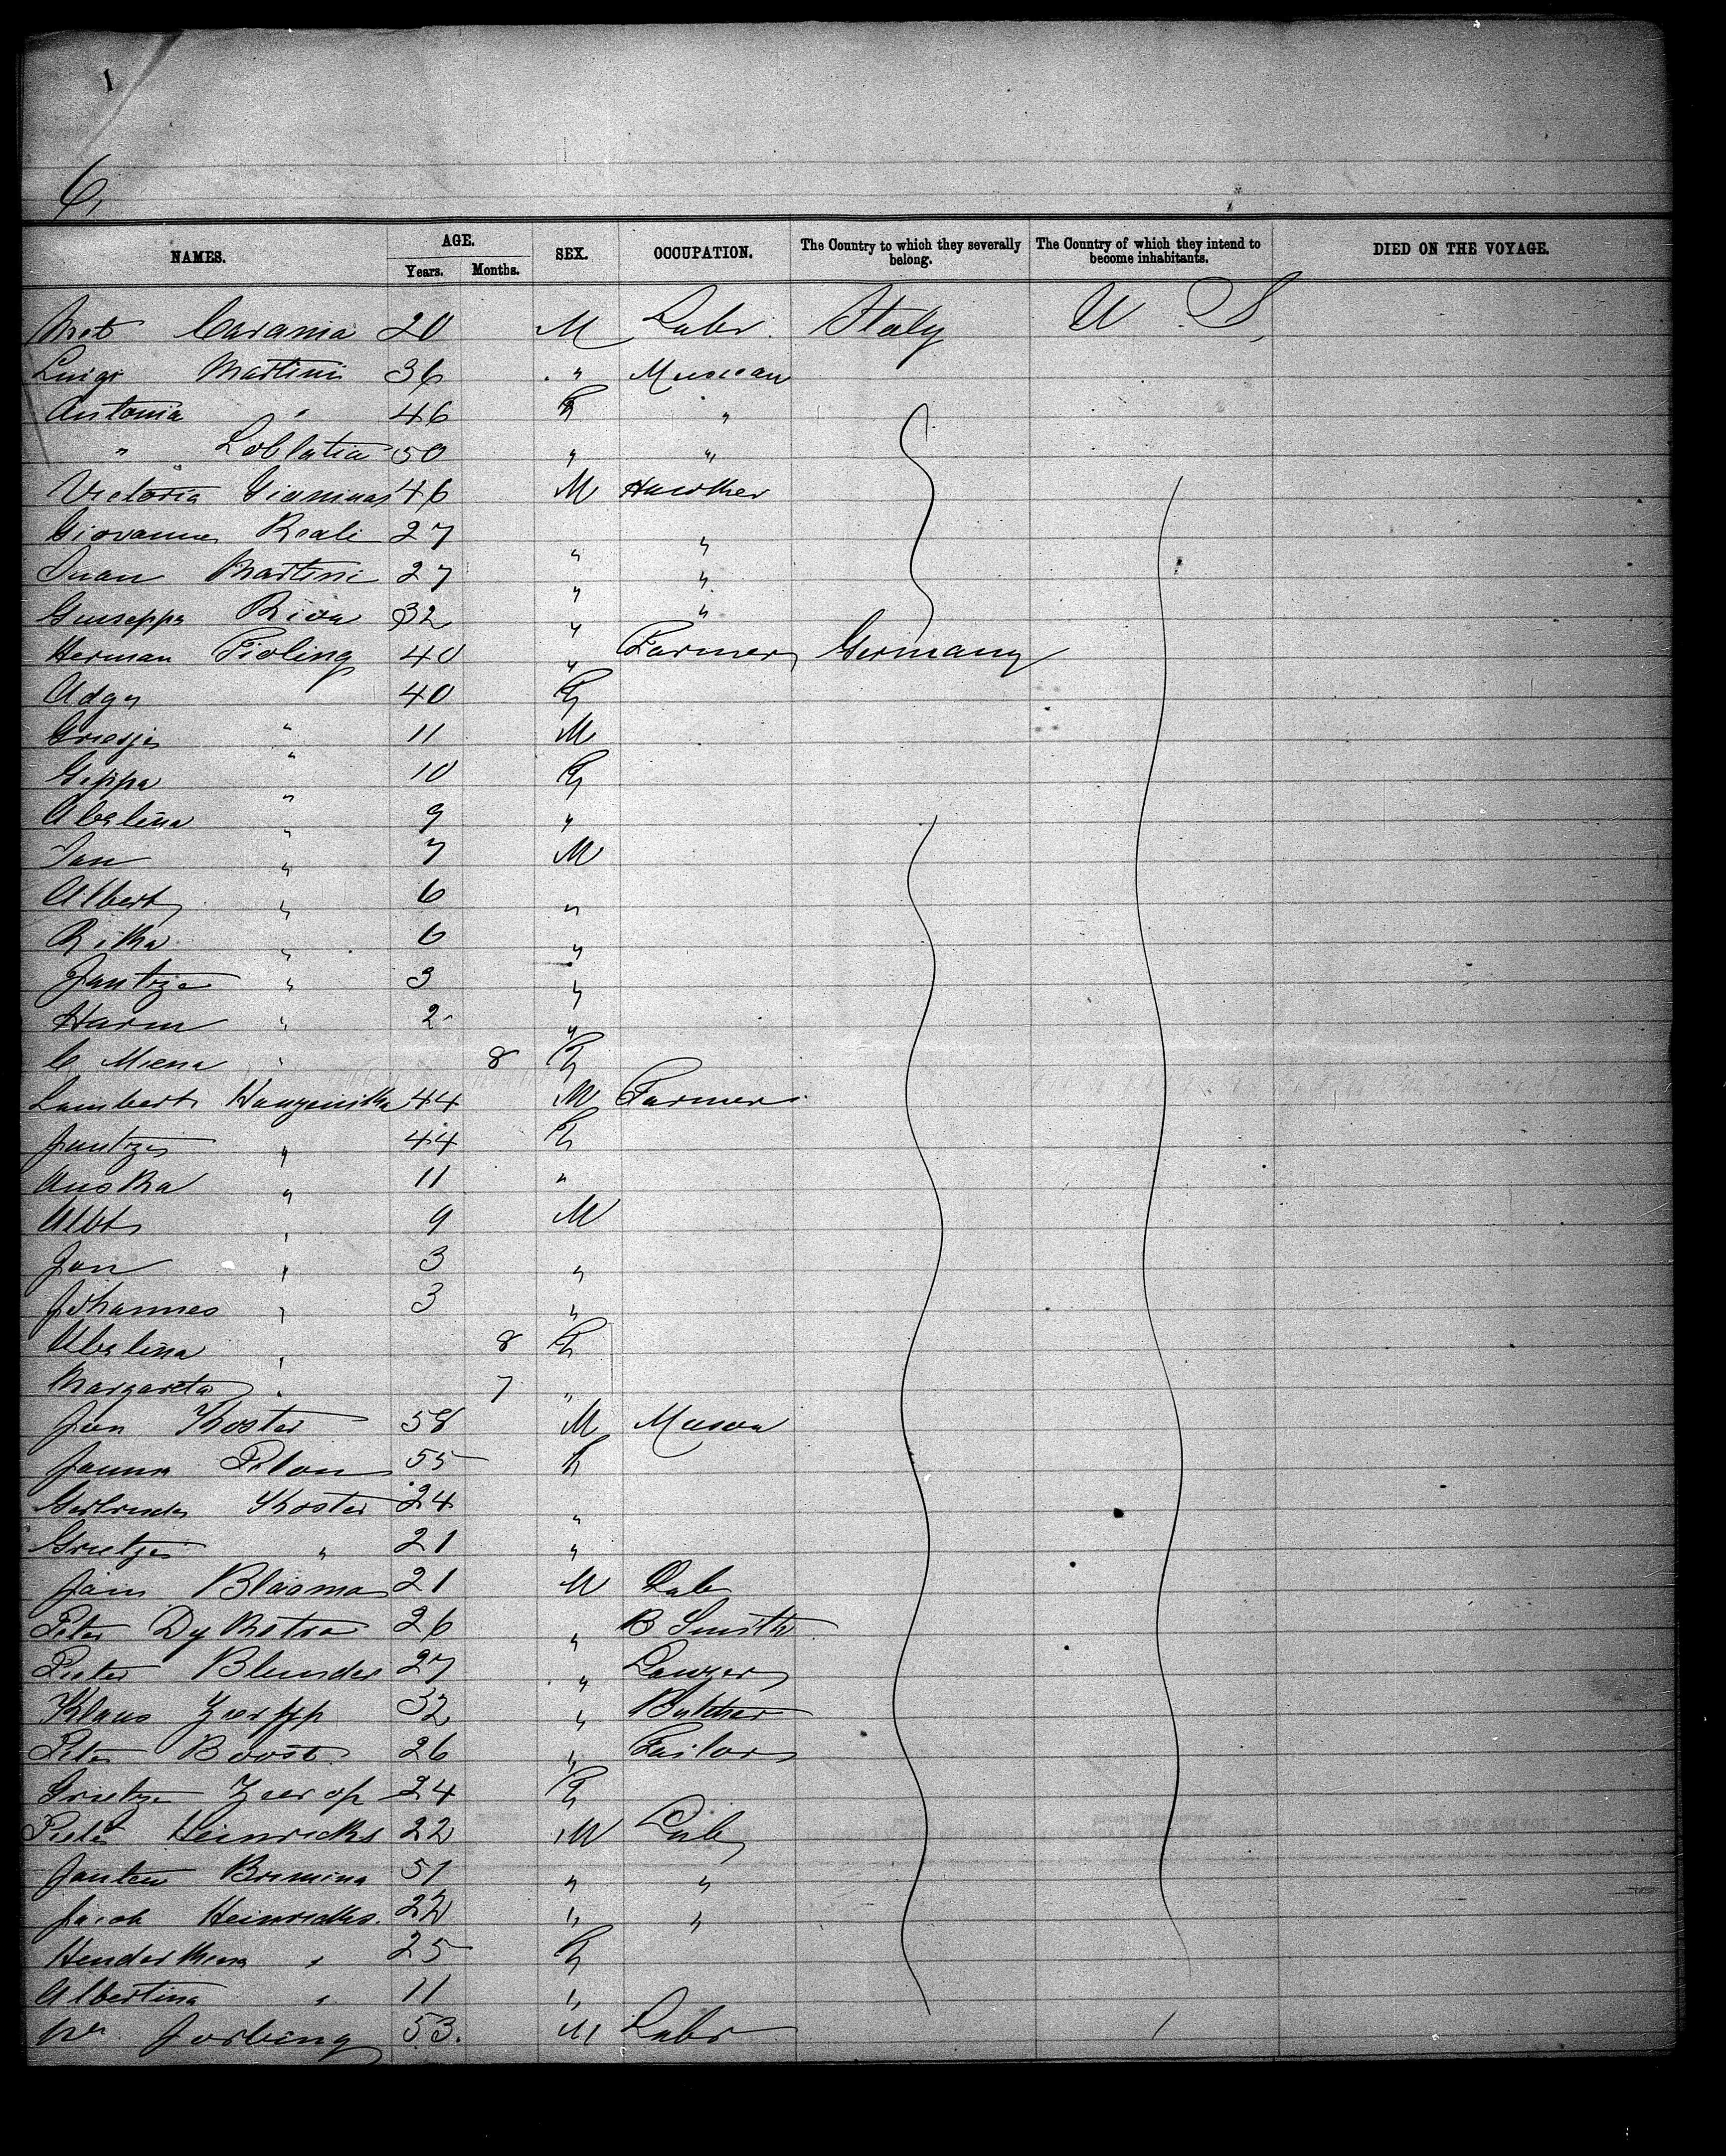 6,
NAMES. AGE. SEX. OCCUPATION. The Country to which they severally belong. The Country of which they intend to become inhabitants. DIED ON THE VOYAGE.
Years. Months.
Carania 20 M Labr. Italy U S
Luigi Martini 36 " Musican
Antonia " 46 F "
" Loblatia 50 " "
Victoria Gioninas 46 M Hawker
Giovanna Reali 27 " "
Juan Martini 27 " "
Guiseppa Riva 32 " "
Herman Tioling 40 " Farmer Germany
Adgy 40 F
Grietje " 11 M
Geppa " 10 F
Abelina " 9 "
Jan " 7 M
Albert " 6 "
Rika " 6 "
Jantze " 3 "
Harm " 2 "
C Miena " 8 F
Lambert 44 M Farmer
Jantze " 44 F
Auska " 11 "
Albt " 9 M
Jan " 3 "
Johannes " 3 "
Abelina " 8 F
Margareta " 7 "
Jan Koster 58 M Mason
Janna Pilon 55 F
Gertruda Koster 24 "
Grietje " 21 "
Jan Blaoma 21 M Lab
Peter Dykstra 26 " B Smith
Pieter Blender 27 " Lawyer
Klaus 32 " Butcher
Peter Boost 26 " Tailor
Grietze Zeerop 24 F
Pieter Heinricks 22 M Lab
Janten Bremina 51 " "
Jacob Heinricks. 22 " "
" 25 F
Albertina " 11 "
Jorbing 53. M Labr